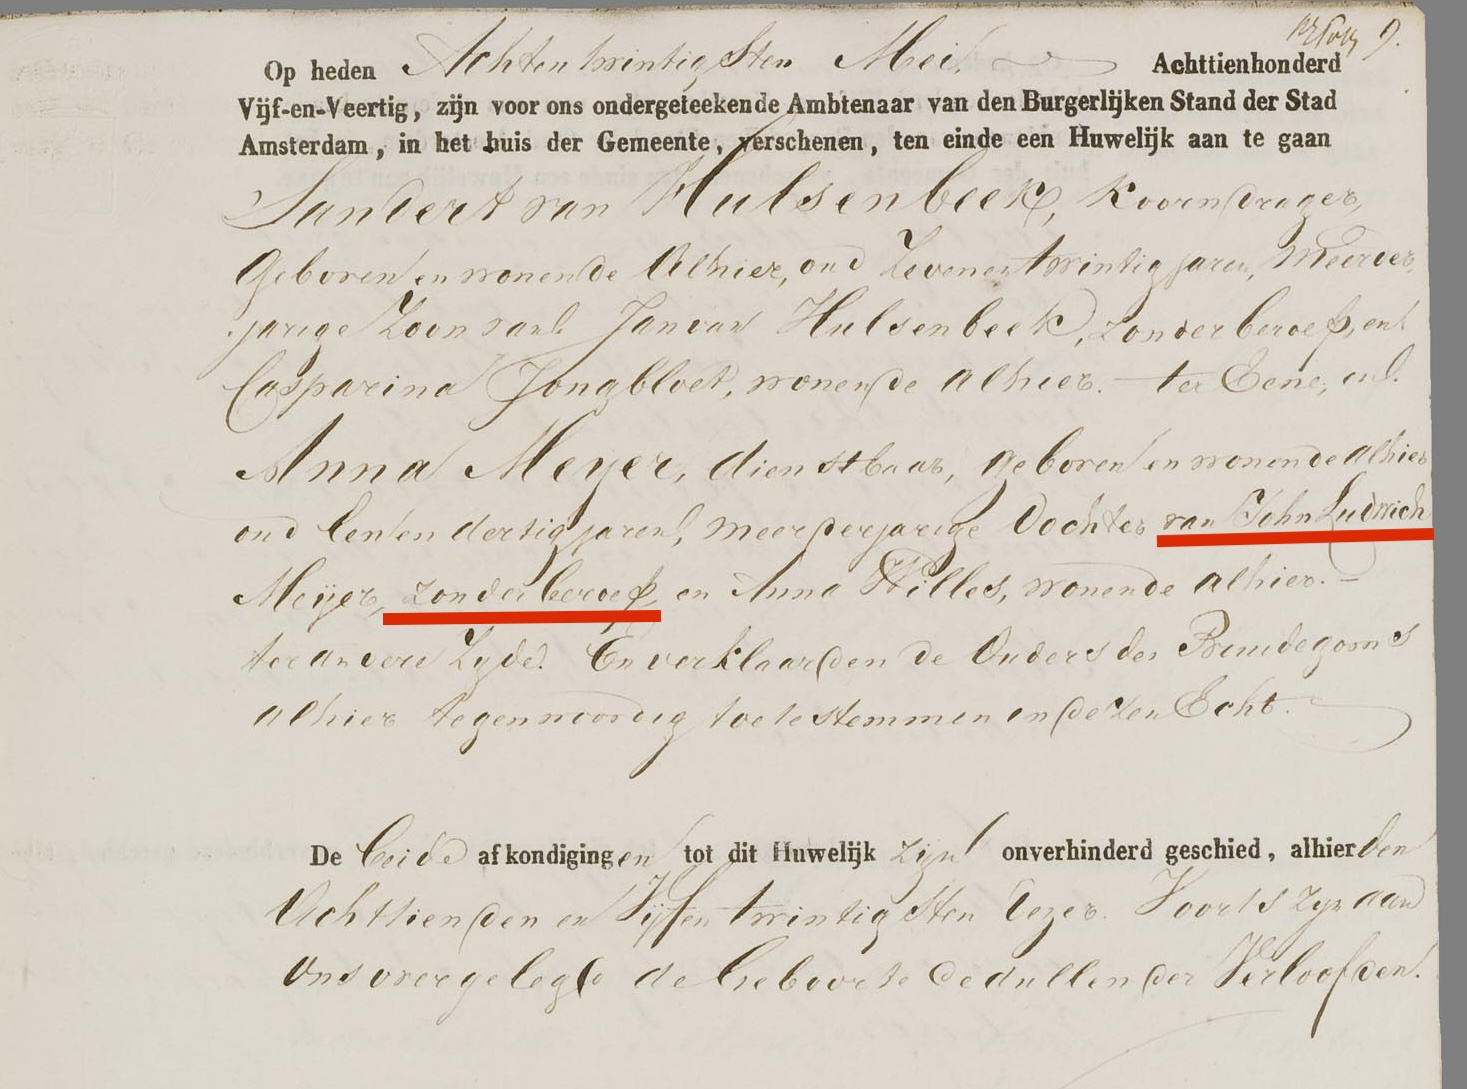 9.
Op heden Achtentwintigsten Mei. Achttienhonderd
Vijf-en-Veertig, zijn voor ons ondergeteekende Ambtenaar van den Burgerlijken Stand der Stad
Amsterdam, in het huis der Gemeente, verschenen, ten einde een Huwelijk aan te gaan
Sandert van Hulsenbeek, Koorndrager,
geboren en wonende Alhier, oud Zevenentwintig jaren, Meerder,
jarige Zoon van Jan van Hulsenbeek, zonder beroep, en
Casparina Jongbloet, wonende alhier. ter Eene, en
Anna Meyer, dienstbaar, geboren en wonende alhier
oud Eenen dertig jaren, meerderjarige Dochter van John Ludwich
Meijer, zonder beroep, en Anna Willes, wonende alhier.
ter andere Zyde. En verklaarden de Ouders des Bruidegoms
alhier tegenwoordig toetestemmen in dezen Echt.
De beide afkondigingen tot dit Huwelijk zijn onverhinderd geschied, alhier den
Achttienden en Vijfentwintigsten dezer. Voorts zyn aan
ons overgelegd de Geboorte Cedullen der Verloofden.